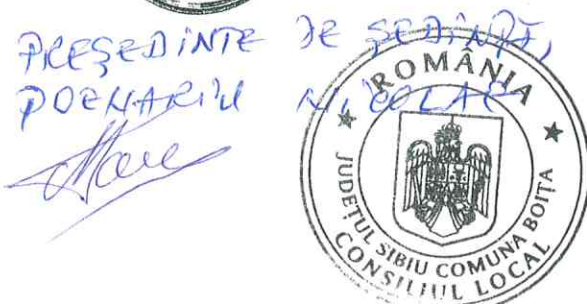 PREȘEDINTE DE ȘEDINȚĂ,
POENARIU NICOLAE
ROMÂNIA
JUDEȚUL SIBIU COMUNA BOIȚA
CONSILIUL LOCAL